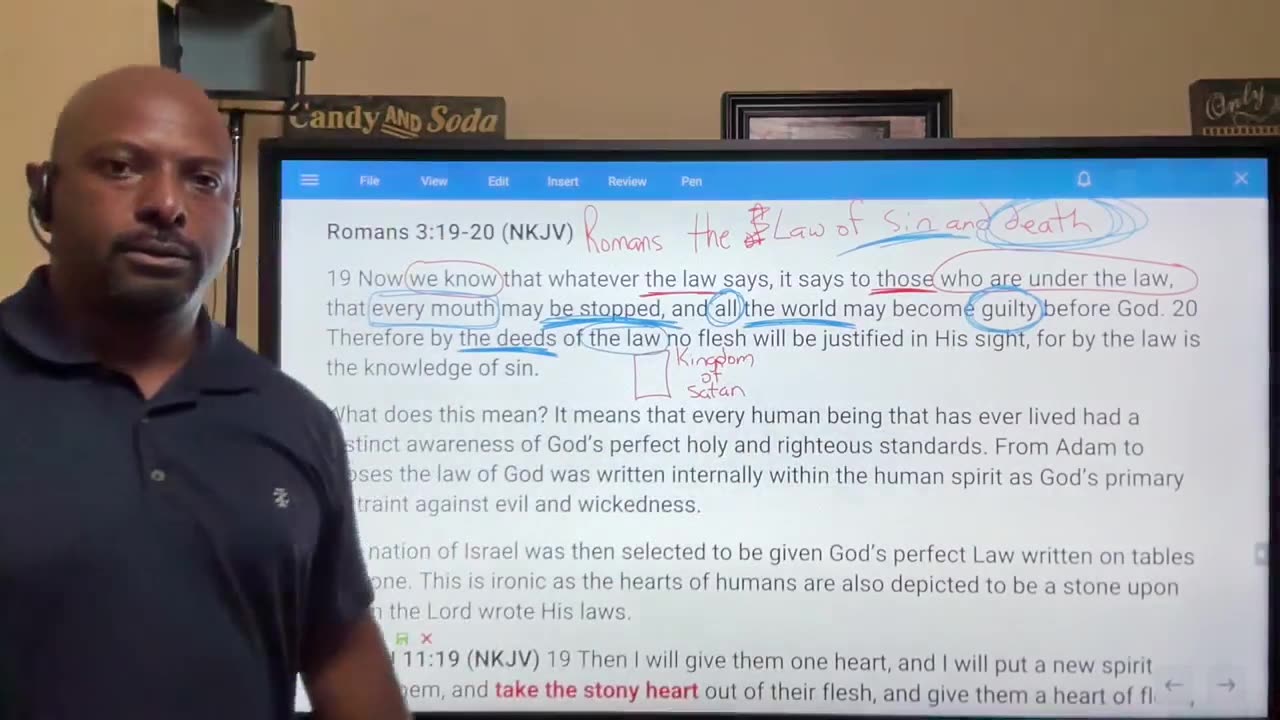 Candy AND Soda
Only
File View Edit Insert Review Pen
Romans 3:19-20 (NKJV) Romans the Law of sin and death
19 Now we know that whatever the law says, it says to those who are under the law,
that every mouth may be stopped, and all the world may become guilty before God. 20
Therefore by the deeds of the law no flesh will be justified in His sight, for by the law is
the knowledge of sin.
Kingdom
of
Satan
What does this mean? It means that every human being that has ever lived had a
stinct awareness of God's perfect holy and righteous standards. From Adam to
oses the law of God was written internally within the human spirit as God's primary
traint against evil and wickedness.
nation of Israel was then selected to be given God's perfect Law written on tables
one. This is ironic as the hearts of humans are also depicted to be a stone upon
the Lord wrote His laws.
11:19 (NKJV) 19 Then I will give them one heart, and I will put a new spirit
em, and take the stony heart out of their flesh, and give them a heart of